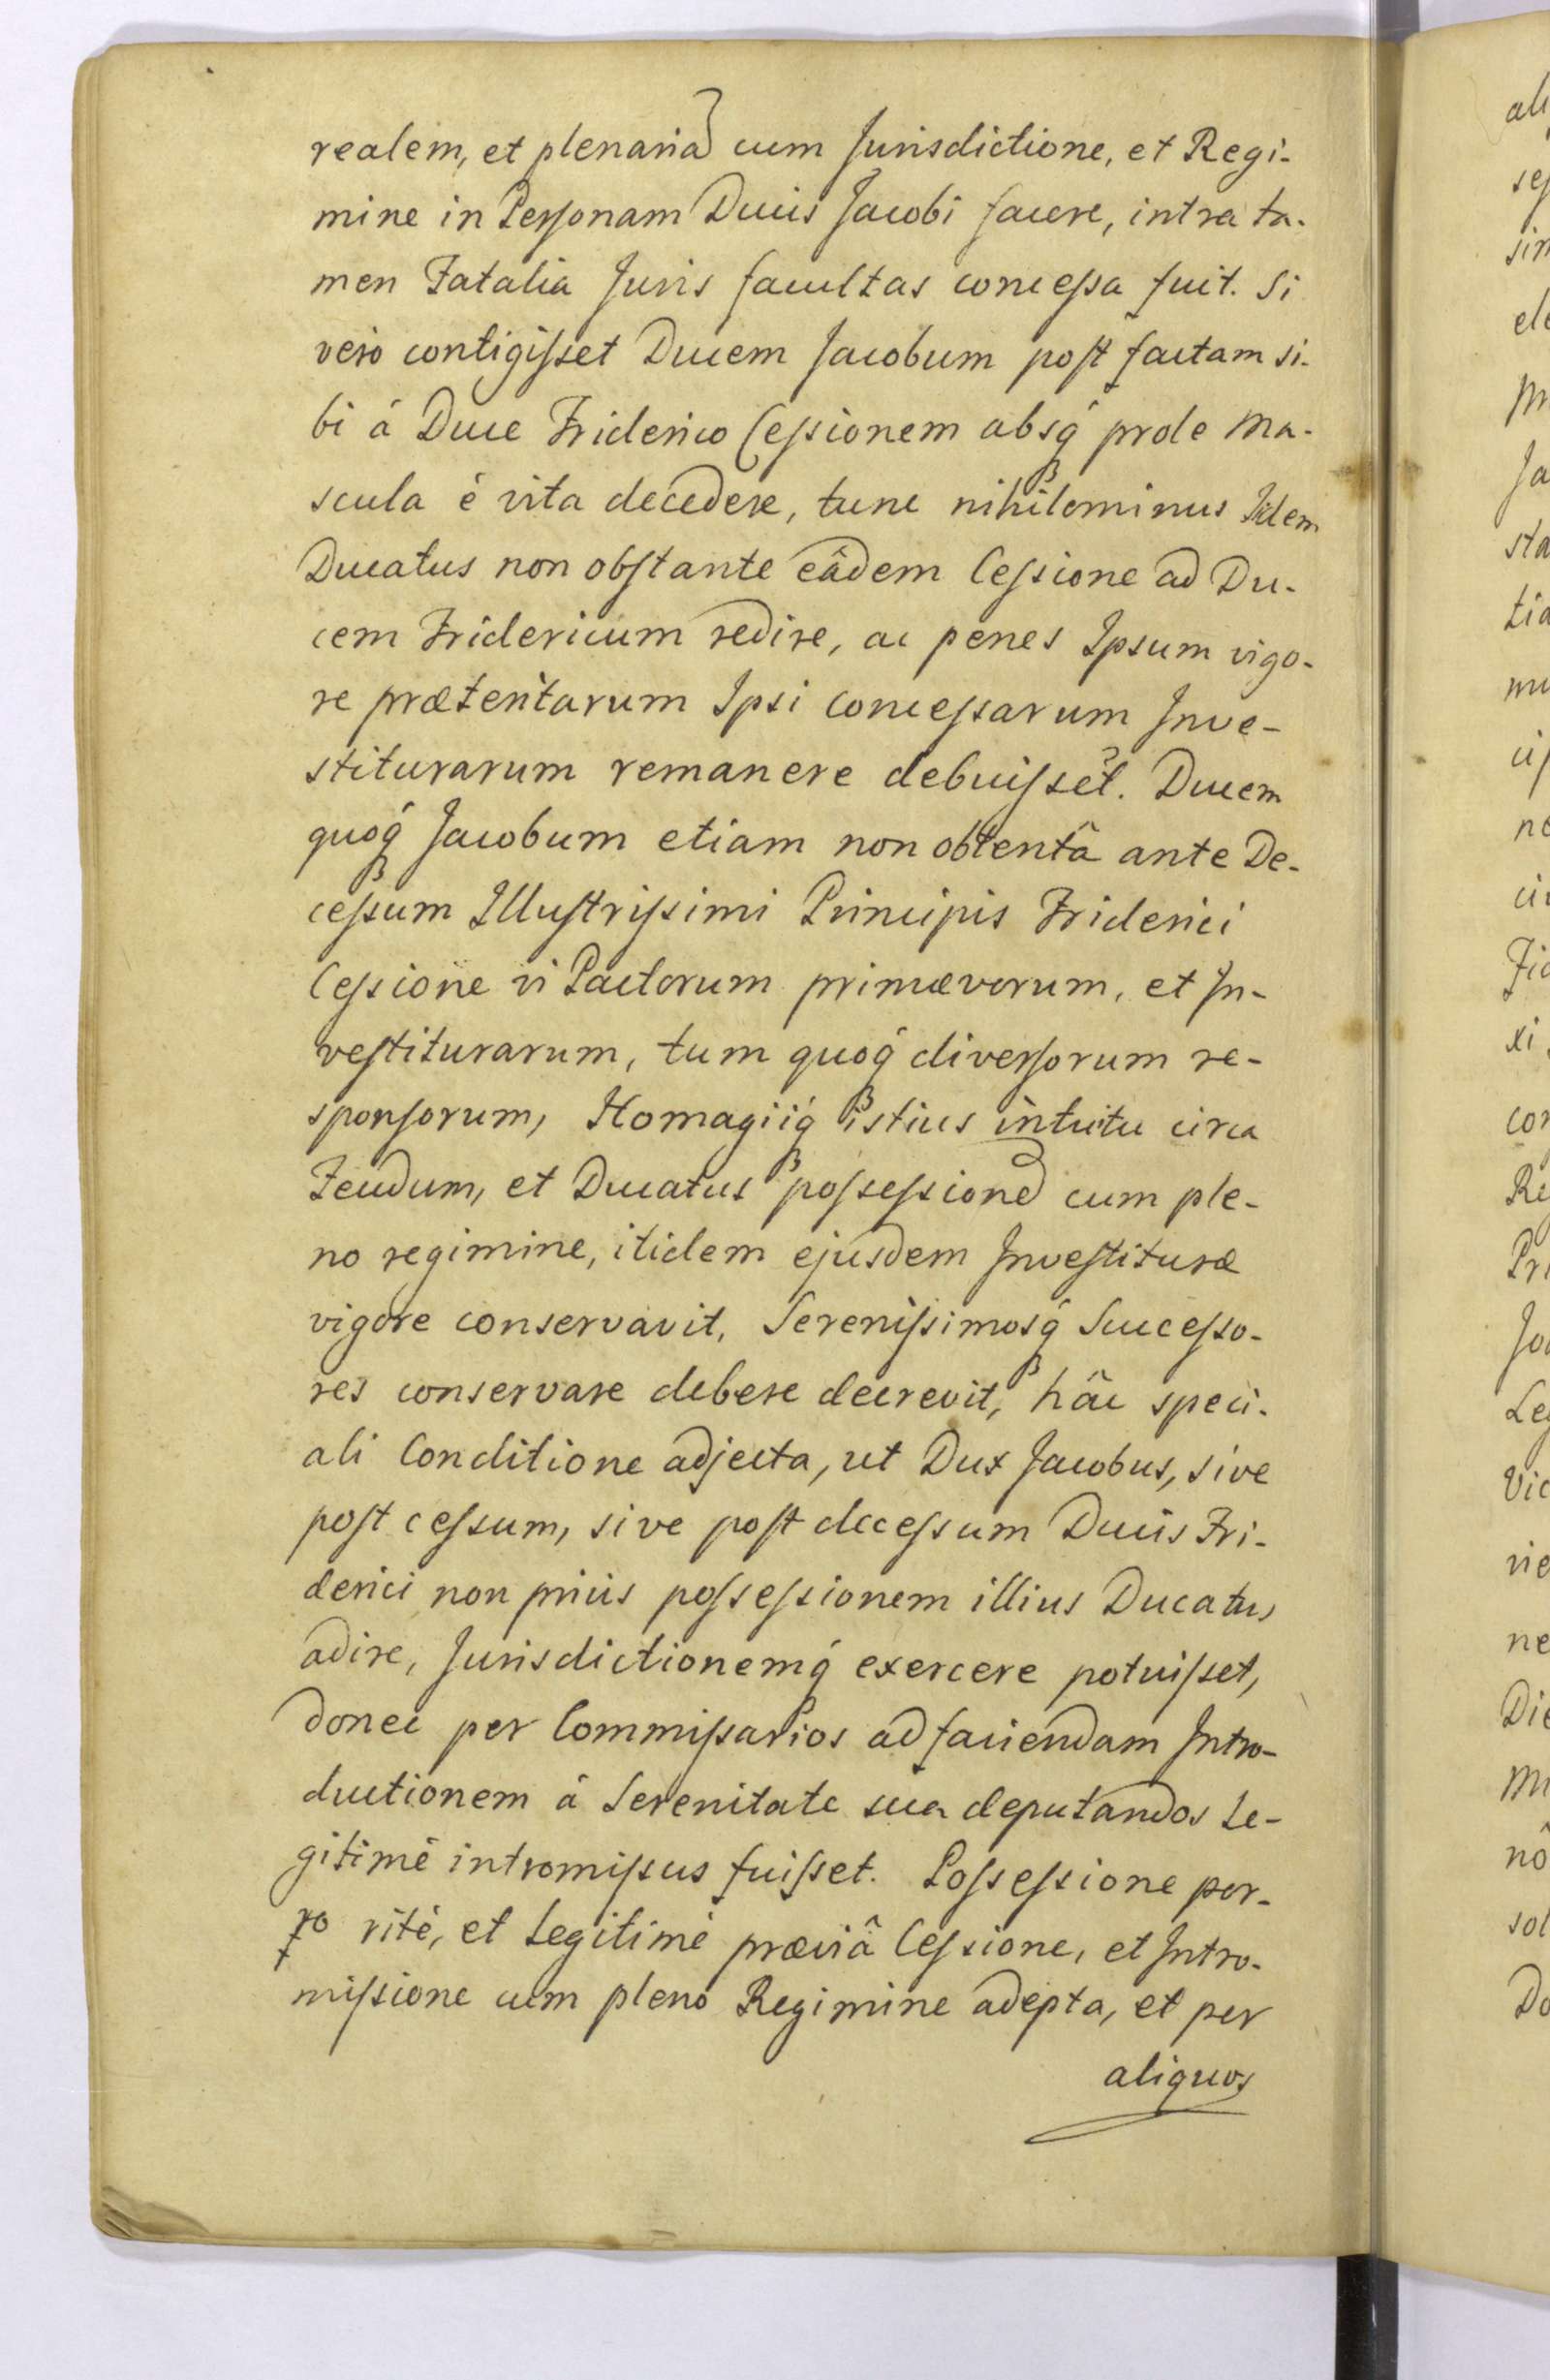 realem, et plenariā cum Jurisdictione, et Regi-
mine in Personam Ducis Jacobi facere, intra ta-
men Fatalia Juris facultas concessa fuit. Si
vero contigisset Ducem Jacobum post factam si-
bi á Duce Friderico Cessionem absq́ prole Ma-
scula é vita decedere, tunc nihilominus Idem
Ducatus non obstante eâdem Cessione ad Du-
cem Fridericum redire, ac penes Ipsum vigo-
re prætentarum Ipsi concessarum Inve-
stiturarum remanere debuisset. Ducem
quoq́ Jacobum etiam non obtentâ ante De-
cessum Illustrissimi Principis Friderici
Cessione vi Pactorum primævorum, et In-
vestiturarum, tum quoq́ diversorum re-
sponsorum, Homagiiq́ istius intuitu circa
Feudum, et Ducatus possessionē cum ple-
no regimine, itidem ejusdem Investituræ
vigore conservavit, Serenissimosq́ Successo-
res conservare debere decrevit, hâc speci-
ali Conditione adjecta, ut Dux Jacobus, sive
post cessum, sive post decessum Ducis Fri-
derici non priùs possessionem illius Ducatus
adire, Jurisdictionemq́ exercere potuisset,
donec per Commissarios ad faciendam Intro-
ductionem á Serenitate sua deputandos Le-
gitimé intromissus fuisset. Possessione por-
ro rité, et Legitimé præviâ Cessione, et Intro-
missione cum pleno Regimine adepta, et per
aliquos